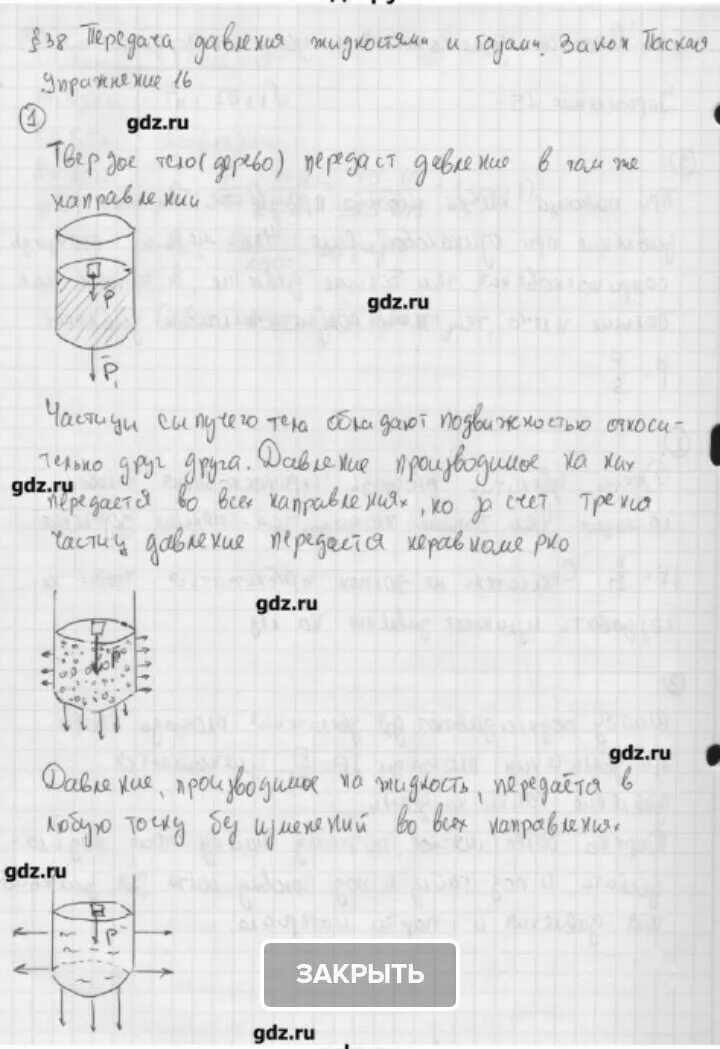 §38 Передача давления жидкостями и газами. Закон Паскаля
Упражнение 16
1
gdz.ru
Твердое тело (дерево) передаст давление в том же
направлении
P
gdz.ru
P₁
Частицы сыпучего тела обладают подвижностью относи-
тельно друг друга. Давление производимое на них
gdz.ru
передается во всех направлениях, но за счет трения
частиц давление передается неравномерно
gdz.ru
P
gdz.ru
Давление, производимое на жидкость, передаётся в
любую точку без изменений во всех направлениях
gdz.ru
P
ЗАКРЫТЬ
gdz.ru